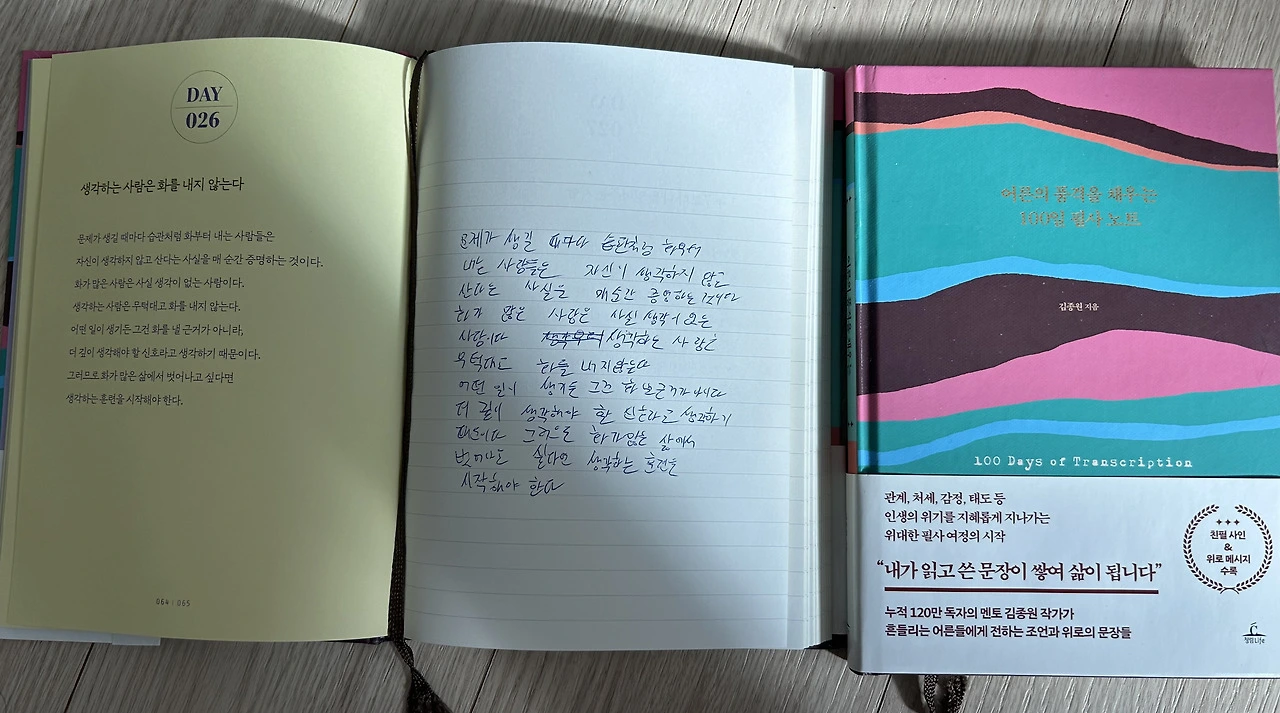 DAY
026
생각하는 사람은 화를 내지 않는다
문제가 생길 때마다 습관처럼 화부터 내는 사람들은
자신이 생각하지 않고 산다는 사실을 매 순간 증명하는 것이다.
화가 많은 사람은 사실 생각이 없는 사람이다.
생각하는 사람은 무턱대고 화를 내지 않는다.
어떤 일이 생기든 그건 화를 낼 근거가 아니라,
더 깊이 생각해야 할 신호라고 생각하기 때문이다.
그러므로 화가 많은 삶에서 벗어나고 싶다면
생각하는 훈련을 시작해야 한다.
064 | 065
문제가 생길 때마다 습관처럼 화부터
내는 사람들은 자신이 생각하지 않고
산다는 사실을 매순간 증명하는 것이다
화가 많은 사람은 사실 생각이 없는
사람이다 생각하는 사람은
무턱대고 화를 내지 않는다
어떤 일이 생기든 그건 화 낼 근거가 아니다
더 깊이 생각해야 할 신호라고 생각하기
때문이다 그러므로 화가 많은 삶에서
벗어나고 싶다면 생각하는 훈련을
시작해야 한다
어른의 품격을 채우는
100일 필사 노트
김종원 지음
100 Days of Transcription
관계, 처세, 감정, 태도 등
인생의 위기를 지혜롭게 지나가는
위대한 필사 여정의 시작
“내가 읽고 쓴 문장이 쌓여 삶이 됩니다”
누적 120만 독자의 멘토 김종원 작가가
흔들리는 어른들에게 전하는 조언과 위로의 문장들
친필 사인
&
위로 메시지
수록
청림Life